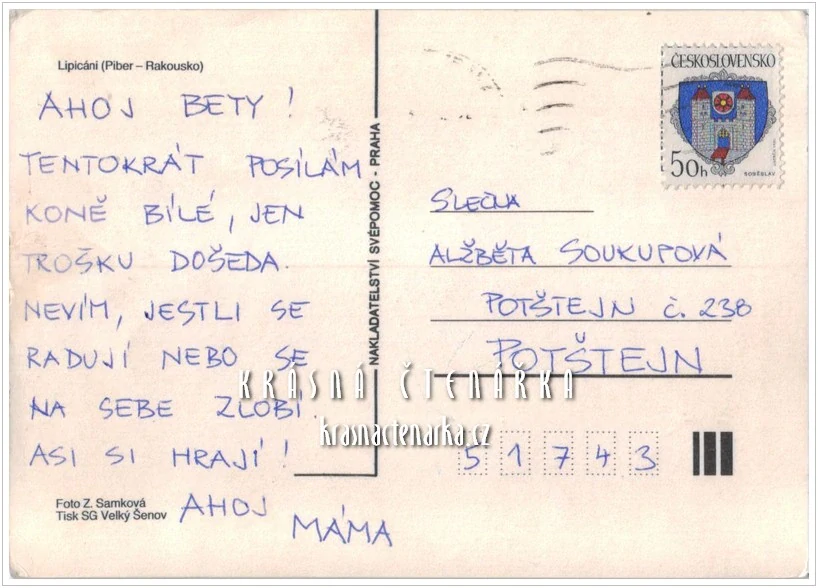 Lipicáni (Piber – Rakousko)
AHOJ BETY!
TENTOKRÁT POSÍLÁM
KONĚ BÍLÉ, JEN
TROŠKU DOŠEDA.
NEVÍM, JESTLI SE
RADUJÍ NEBO SE
NA SEBE ZLOBÍ.
ASI SI HRAJÍ!
AHOJ
MÁMA
Foto Z. Samková
Tisk SG Velký Šenov
NAKLADATELSTVÍ SVÉPOMOC - PRAHA
ČESKOSLOVENSKO
50h
SOBĚSLAV
SLEČNA
ALŽBĚTA SOUKUPOVÁ
POTŠTEJN č. 238
POTŠTEJN
51743
KRÁSNÁ ČTENÁRKA
krasnactenarka.cz